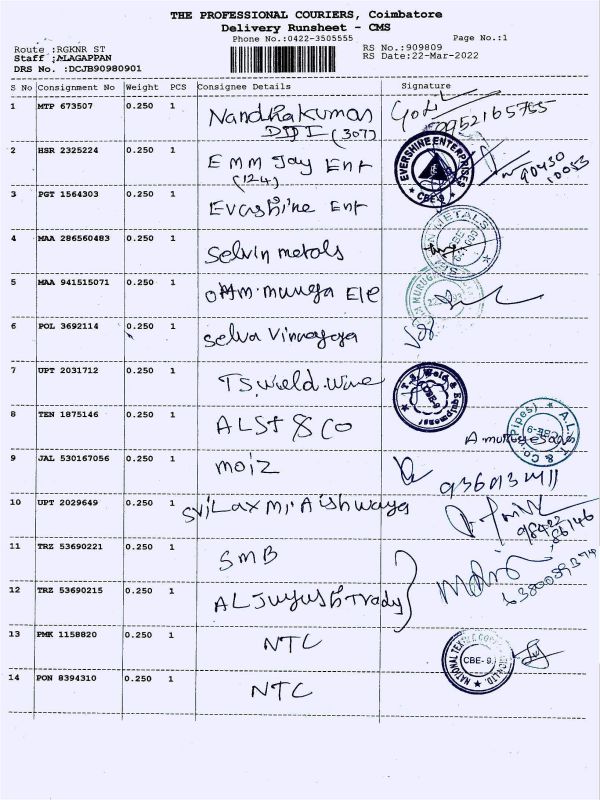 THE PROFESSIONAL COURIERS, Coimbatore
Delivery Runsheet - CMS
Phone No.:0422-3505555 Page No.:1
Route :RGKNR ST RS No.:909809
Staff :ALAGAPPAN RS Date:22-Mar-2022
DRS No. :DCJB90980901
S No Consignment No Weight PCS Consignee Details Signature
1 MTP 673507 0.250 1 Nandhakumar
(307) 9952165755
2 HSR 2325224 0.250 1 Emm Jay Ent
(124) 90430
10053
EVERSHINE ENTERPRISES
* CBE-9 *
3 PGT 1564303 0.250 1 Evashine Ent
4 MAA 286560483 0.250 1 Selvin metals
METALS
5 MAA 941515071 0.250 1
6 POL 3692114 0.250 1 Selva Vinayaga
7 UPT 2031712 0.250 1 TS weld wire
T.S. Weld & Equipment
CBE-9
8 TEN 1875146 0.250 1 ALST & Co
A.L.S.T. & Co (Pipes)
CBE-9
9 JAL 530167056 0.250 1 moiz
10 UPT 2029649 0.250 1 Sri Laxmi Aishwaya
11 TRZ 53690221 0.250 1 SMB
12 TRZ 53690215 0.250 1
13 PMK 1158820 0.250 1 NTC
CBE-9
14 PON 8394310 0.250 1 NTC